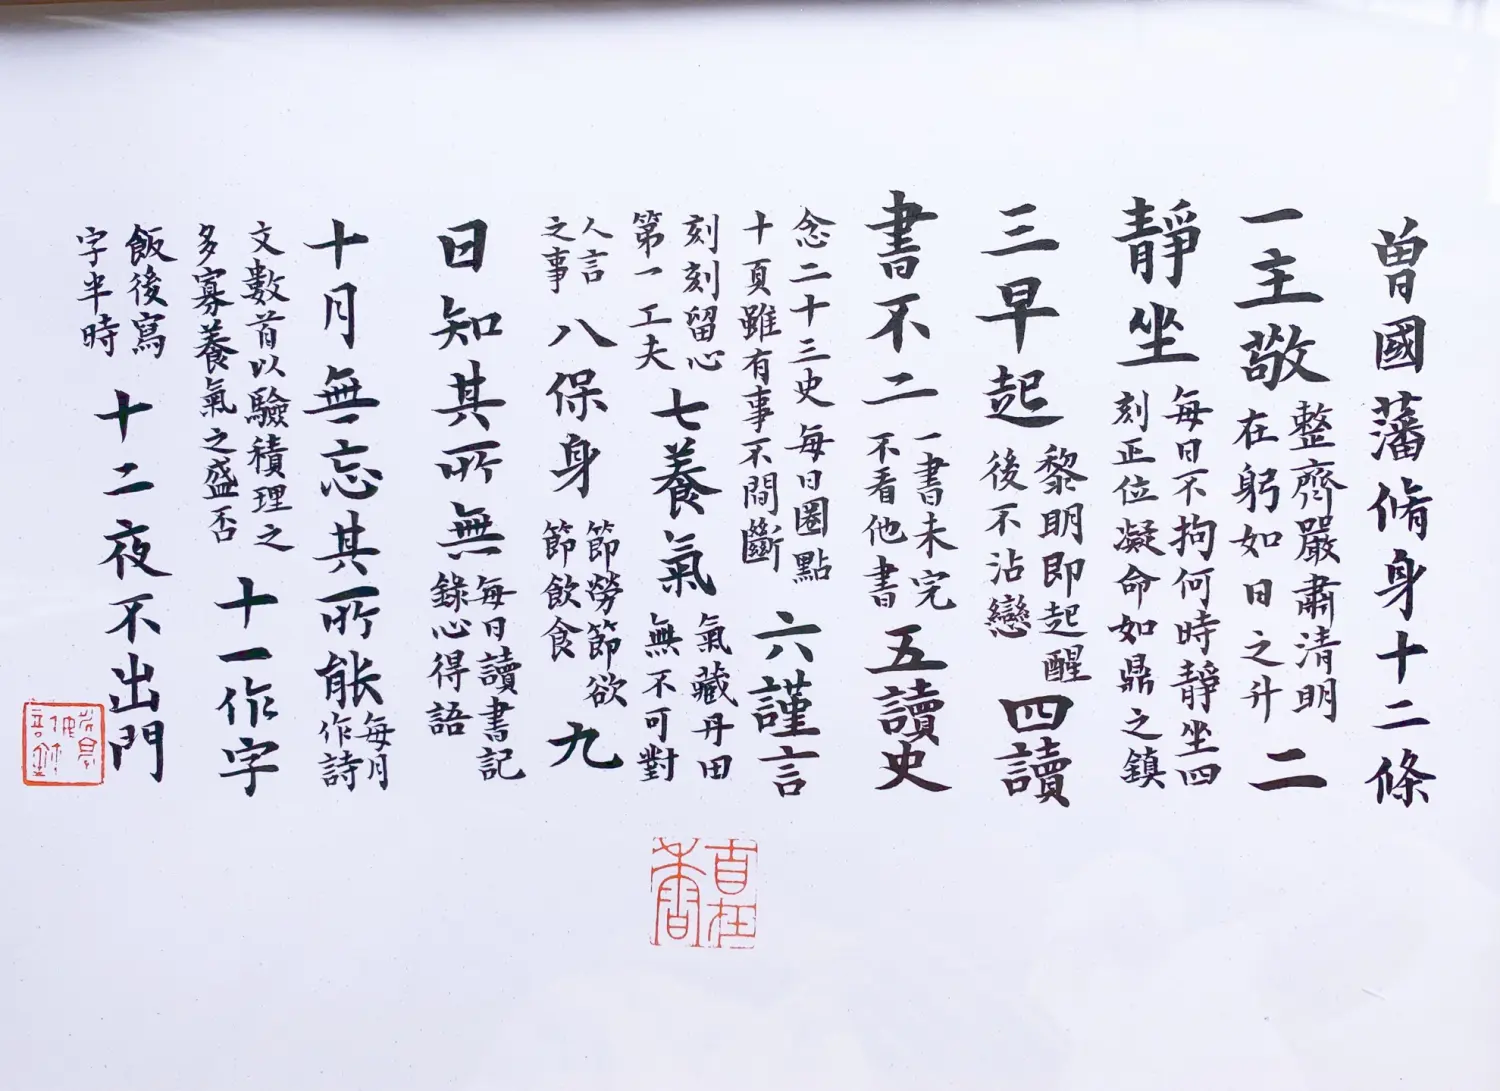 曾國藩脩身十二條
一主敬 整齊嚴肅清明 在躬如日之升 二
靜坐 每日不拘何時靜坐四 刻正位凝命如鼎之鎮
三早起 黎明即起醒 後不沾戀 四讀
書不二 一書未完 不看他書 五讀史
念二十三史每日圈點 十頁雖有事不間斷 六謹言
刻刻留心 第一工夫 七養氣 氣藏丹田 無不可對
人言 之事 八保身 節勞節欲 節飲食 九
日知其所無 每日讀書記 錄心得語
十月無忘其所能 每月 作詩
文數首以驗積理之 多寡養氣之盛否 十一作字
飯後寫 字半時 十二夜不出門